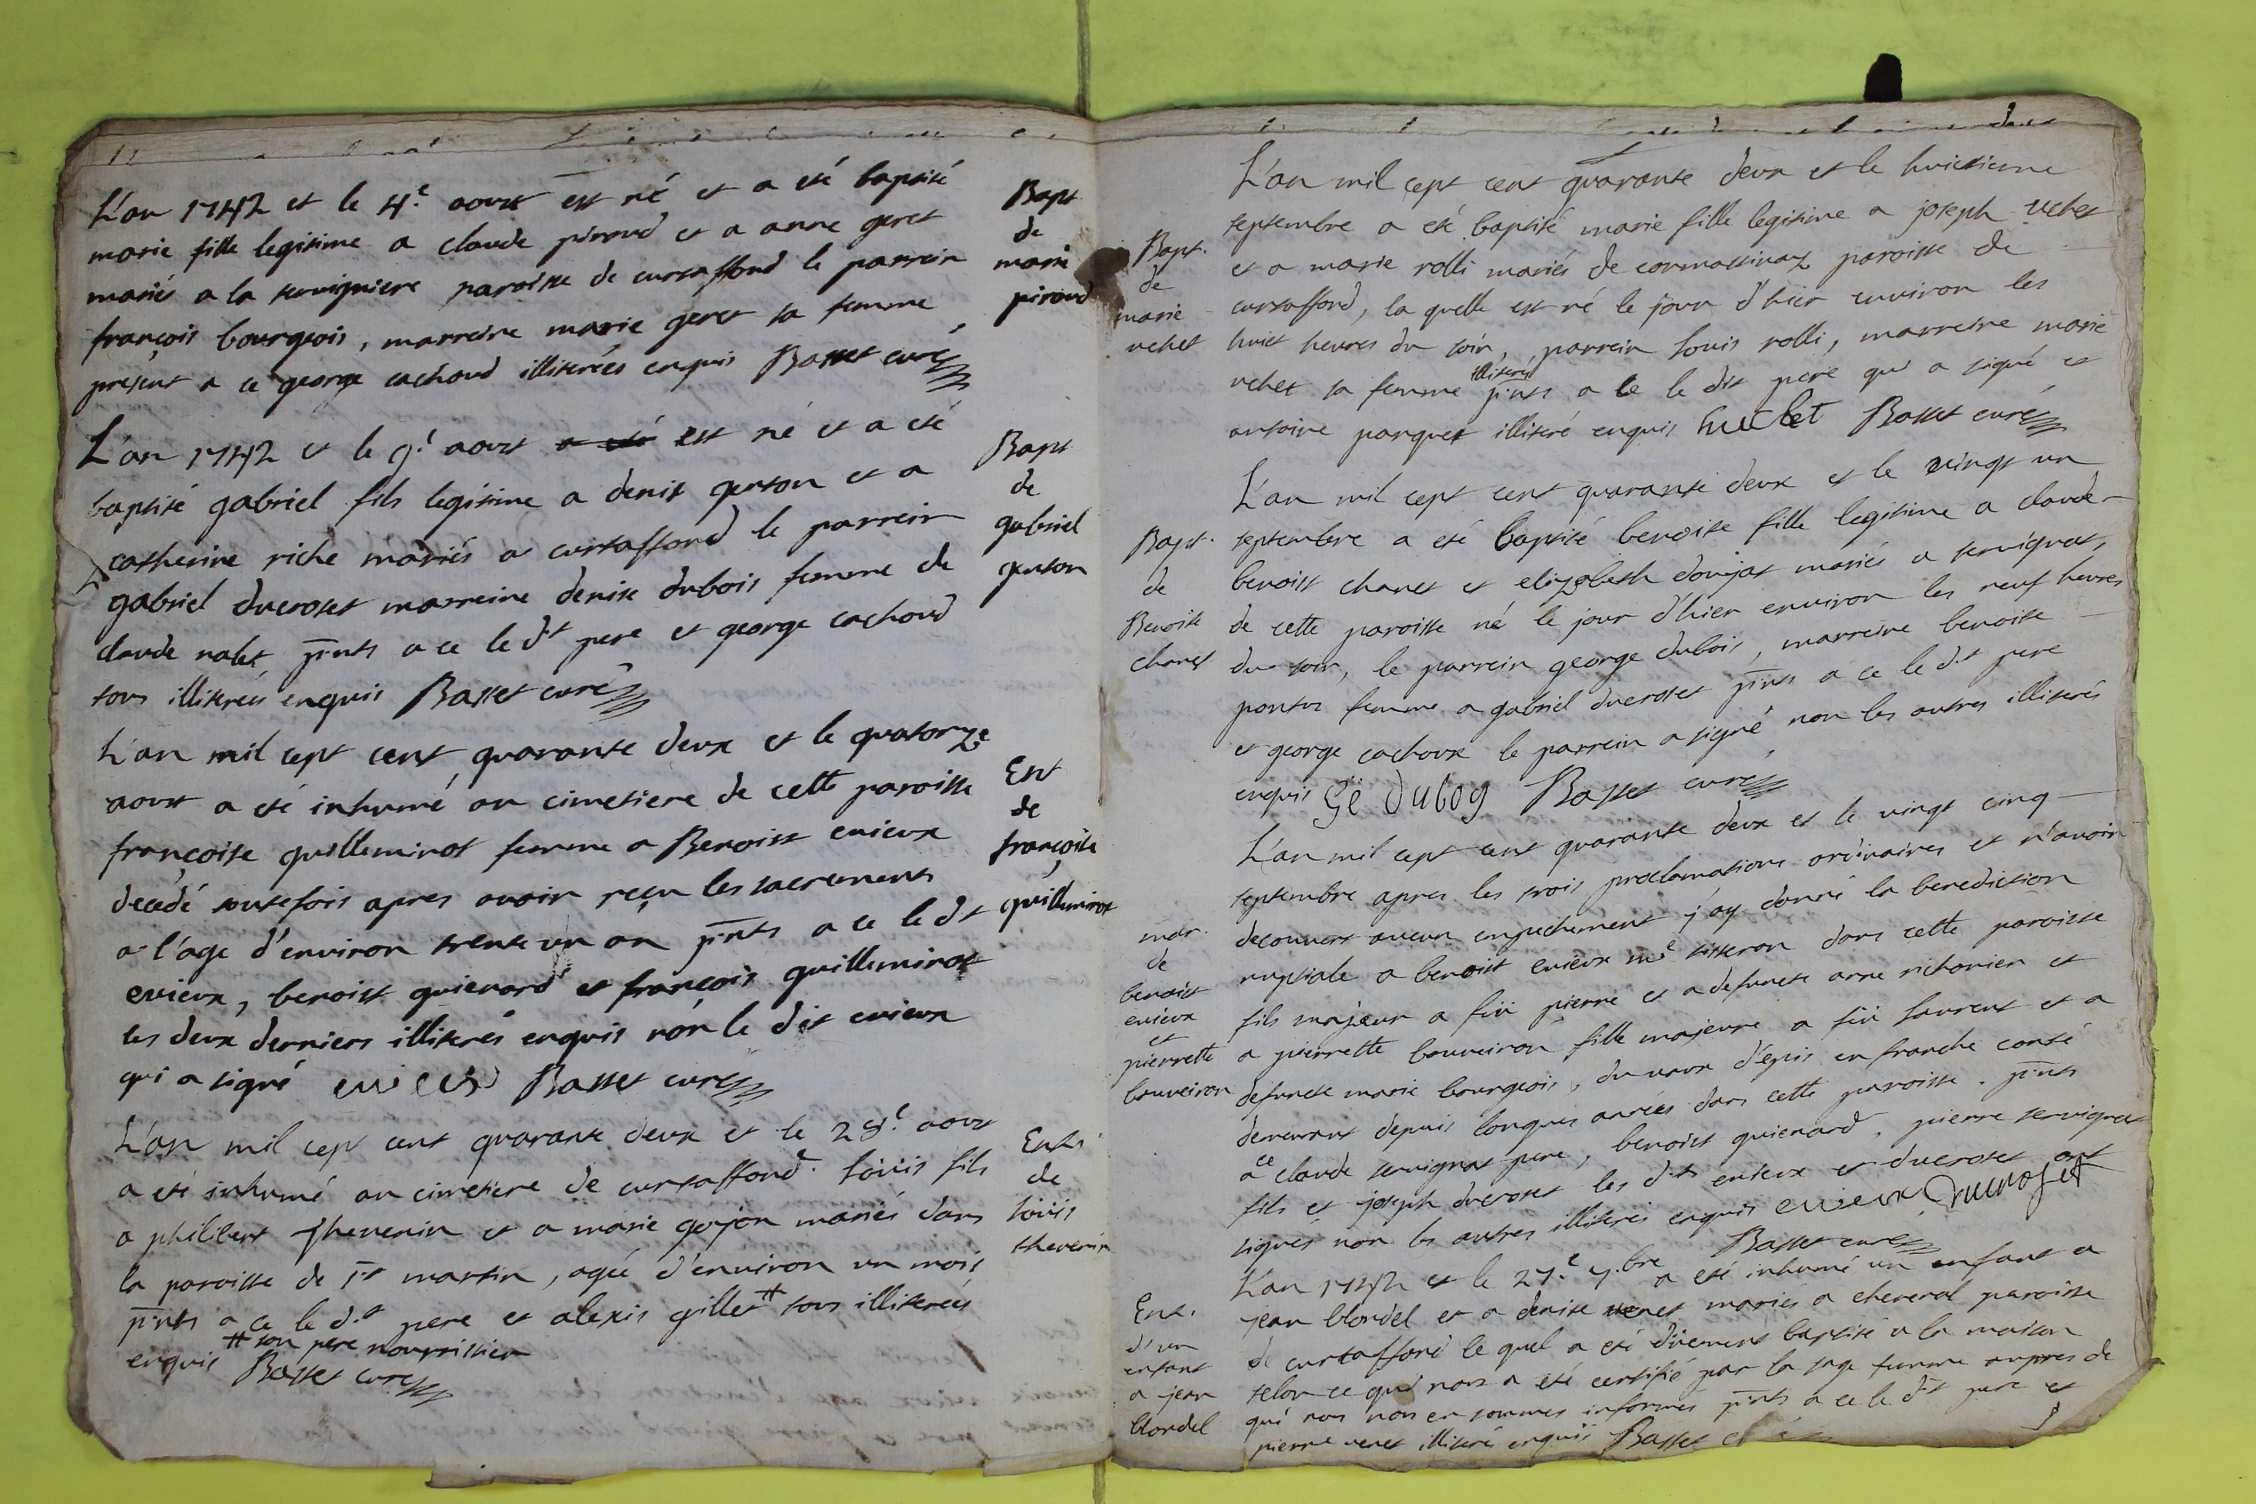 L'an 1742 et le 4e. aoust est né et a eté baptisé
marie fille legitime a claude piroud et a anne geret
mariés a la servigniere paroisse de curtaffond le parrein
françois bourgeois, marreine marie geret sa femme
present a ce george cachoud illiterées enquis Basset curé
Bapt
de
marie
piroud
L'an 1742 et le 9e. aoust a eté est né et a eté
baptisé gabriel fils legitime a denis gerson et a
catherine riche mariés a curtaffond le parrein
gabriel ducroset marreine denise dubois femme de
claude nalet pnts a ce le dt pere et george cachoud
tous illiterées enquis Basset curé
Bapt
de
gabriel
L'an mil cept cent quarante deux et le quatorze
aoust a eté inhumé au cimetiere de cette paroisse
françoise guilleminot femme a Benoist enieux
decedé toutefois apres avoir reçu les sacrements
a l'age d'environ trente un an pnts a ce le dt
enieux, benoist guienard et françois guilleminot
les deux derniers illiterés enquis non le dit enieux
qui a signé Basset curé
Ent
de
françoise
guilleminot
L'an mil cept cent quarante deux et le 28e. aoust
a eté inhumé au cimetiere de curtaffond. loüis fils
a philibert thevenin et a marie gojon mariés dans
la paroisse de st martin, agé d'environ un mois
pnts a ce le d.t pere et alexis gillet # tous illiterées
enquis # son pere nourrissier
Basset curé
Ent.
de
loüis
thevenin
L'an mil cept cent quarante deux et le huictieme
septembre a eté baptisé marie fille legitime a joseph uchet
et a marie rolli mariés de cormassinay paroisse de
curtaffond, la quelle est né le jour d'hier environ les
huict heures du soir, parrein louis rolli, marreine marie
uchet sa femme illiterés pnts a ce le dit pere qui a signé et
antoine parquet illiteré enquis huchet Basset curé
Bapt.
de
marie
uchet
L'an mil cept cent quarante deux et le vingt un
septembre a eté baptisé benoite fille legitime a claude
benoist chanet et elizabeth donjat mariés a servignat,
de cette paroisse né le jour d'hier environ les neuf heures
du soir, le parrein george dubois, marreine benoite
pontus femme a gabriel ducroset pnts a ce le d.t pere
et george cachoux le parrein a signé non les autres illiterés
enquis Gë duboy Basset curé
Bapt.
de
Benoite
chanet
L'an mil cept cent quarante deux et le vingt cinq
septembre apres les trois proclamations ordinaires et n'avoir
decouvert aucun empechement j'ay donné la benediction
nuptiale a benoist enieux me tisseran dans cette paroisse
fils majeur a fûi pierre et a defuncte anne richonier et
a pierrette bouveiron fille majeure a fûi laurent et a
defuncte marie bourgeois, du vaux d'epis en franche conté
demeurant depuis longues années dans cette paroisse. pnts
a ce claude servignat pere, benoist guienard, pierre servignat
fils et joseph ducroset les d.ts enieux et ducroset ont
signés non les autres illiterés enquis enieux ducroset
Basset curé
mar.
de
benoist
enieux
et
pierrette
bouveiron
L'an 1742 et le 27e. 7.bre a eté inhumé un enfant a
jean blondel et a denise venet mariés a cheveral paroisse
de curtaffond le quel a eté düement baptisé a la maison
selon ce qui nous a eté certifié par la sage femme aupres de
qui nous nous en sommes informés pnts a ce le d.t pere et
pierre venet illiteré enquis Basset
Ent.
d'un
enfant
a jean
blondel